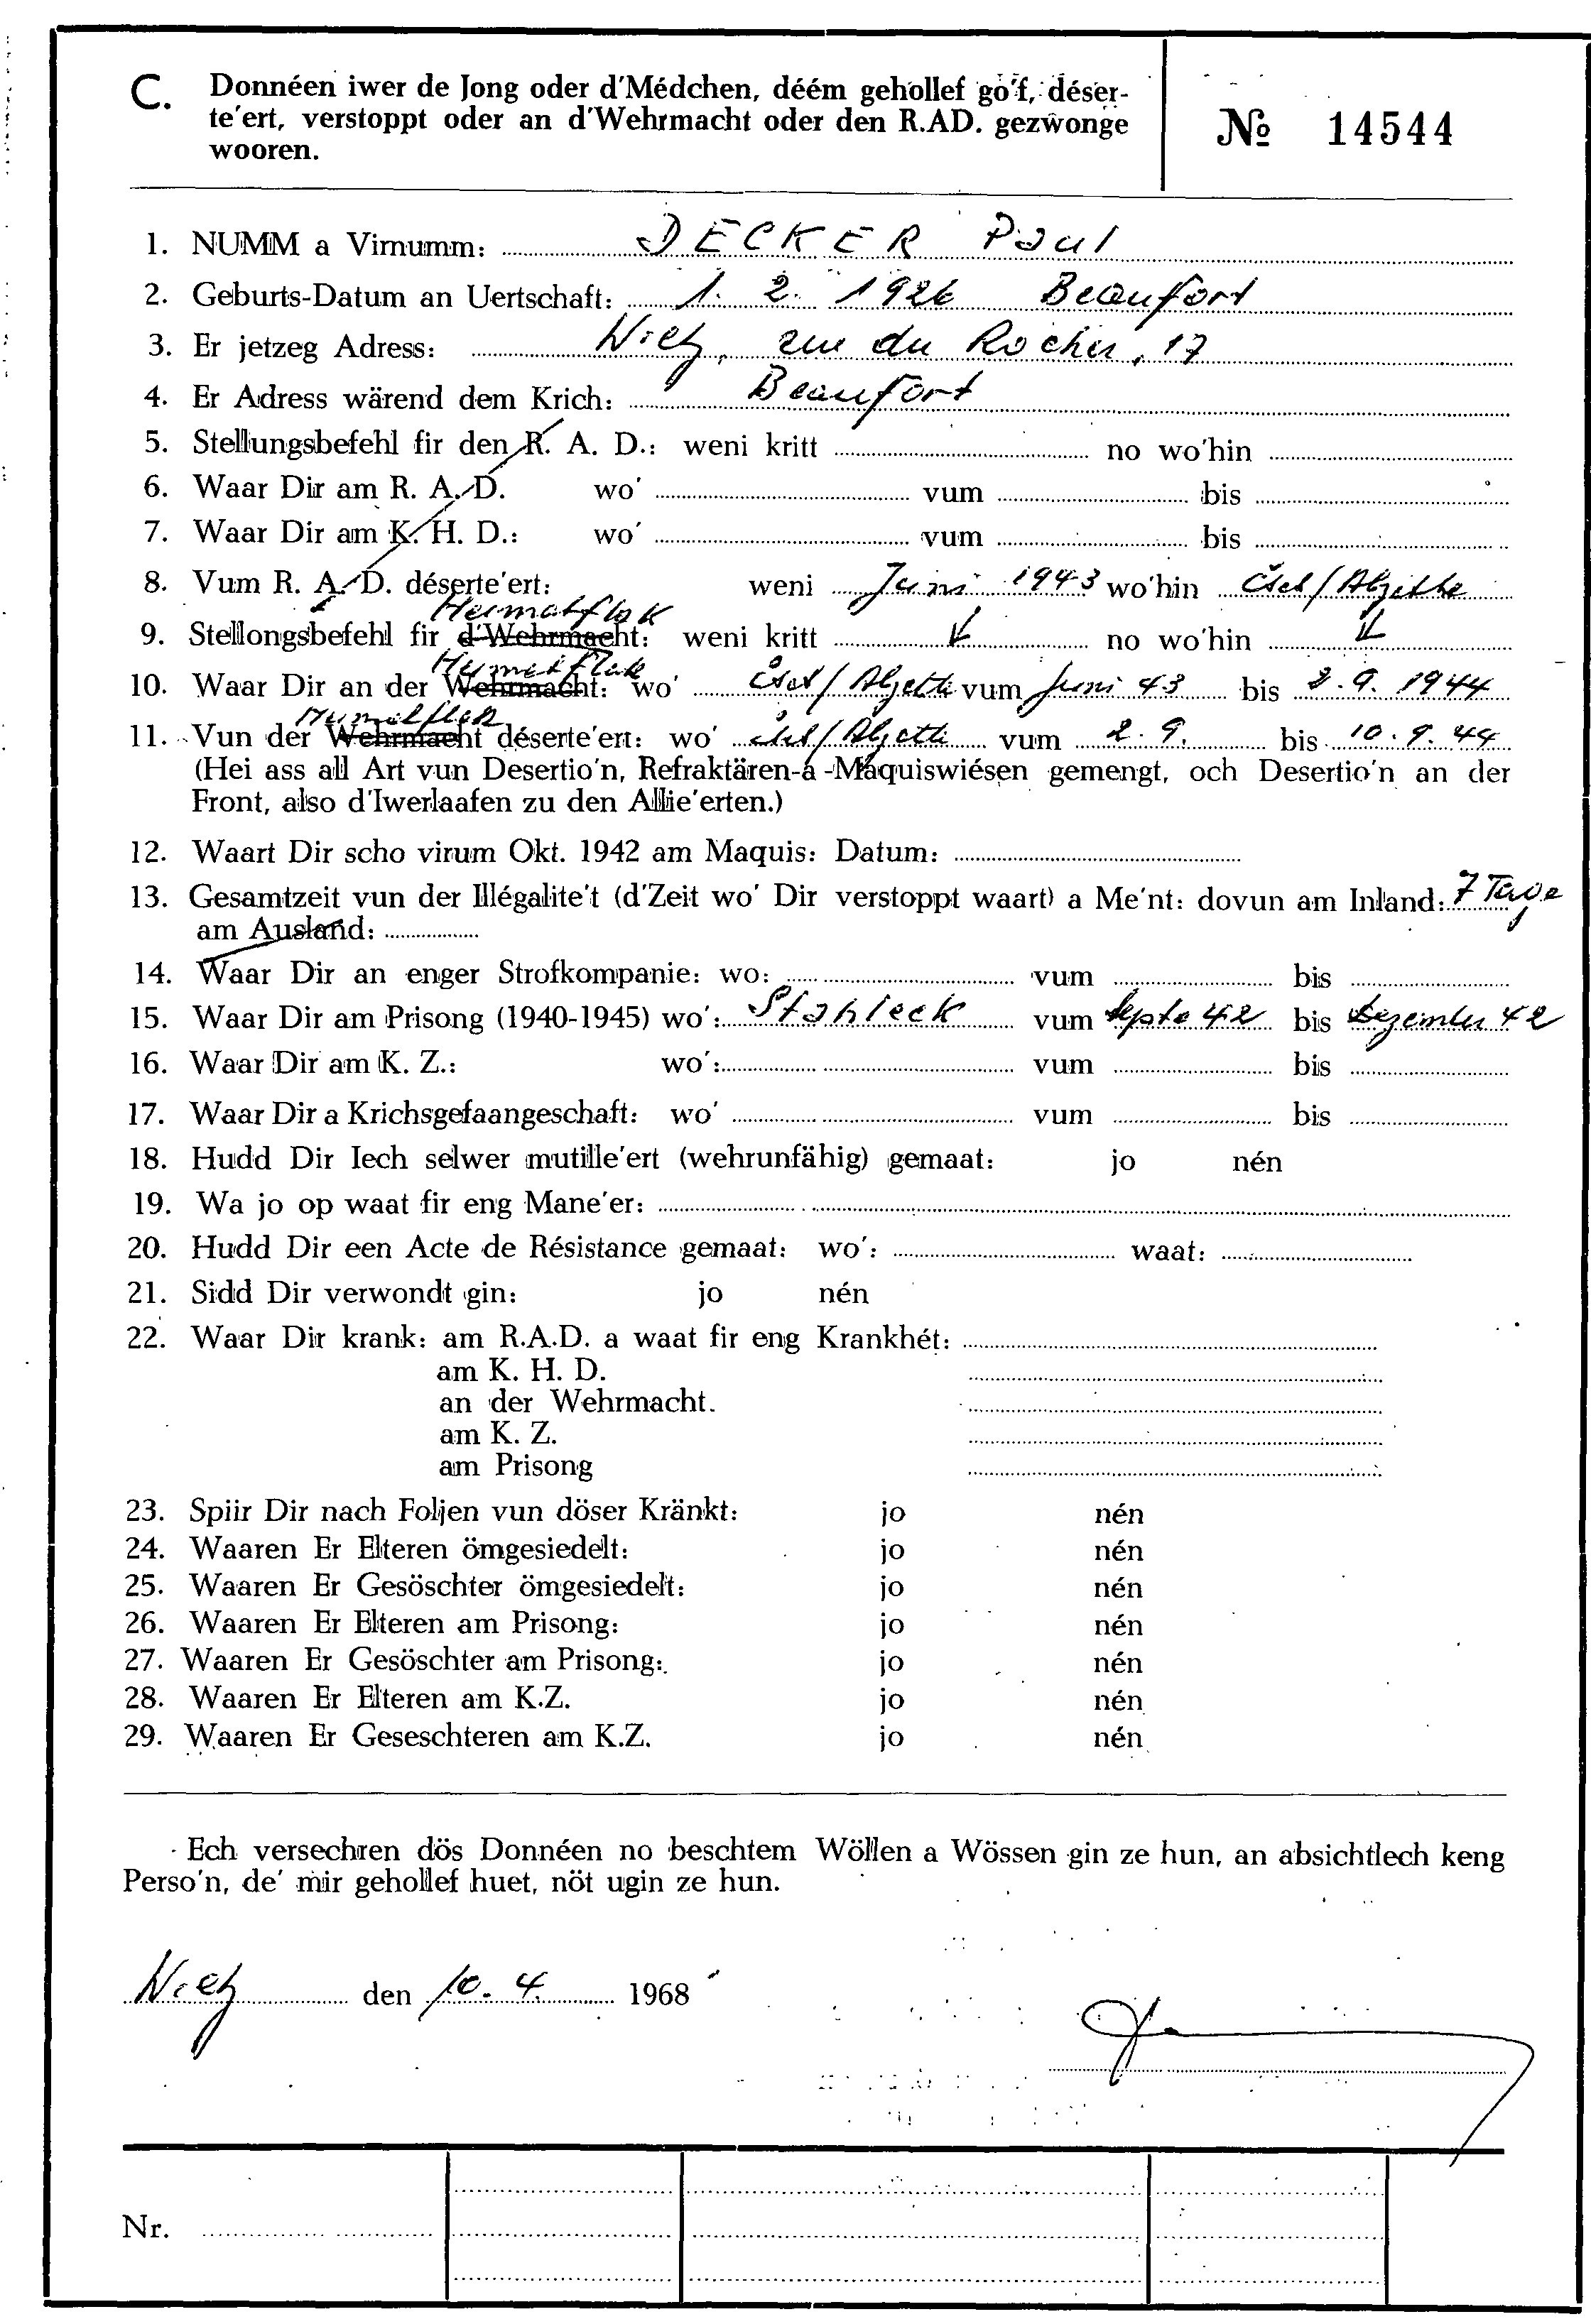 C. Donnéen iwer de Jong oder d'Médchen, déém gehollef go'f, déser-
te'ert, verstoppt oder an d'Wehrmacht oder den R.AD. gezwonge
wooren.
№ 14544
1. NUMM a Virnumm: DECKER Paul
2. Geburts-Datum an Uertschaft: 1. 2. 1926 Beaufort
3. Er jetzeg Adress: Wietz, rue du Rocher, 17
4. Er Adress wärend dem Krich: Beaufort
5. Stellungsbefehl fir den R. A. D.: weni kritt no wo'hin
6. Waar Dir am R. A. D. wo' vum bis
7. Waar Dir am K. H. D.: wo' vum bis
8. Vum R. A. D. déserte'ert: weni Juni 1943 wo'hin Esch/Alzette
Heimatflak
9. Stellongsbefehl fir d'Wehrmacht: weni kritt no wo'hin
Heimatflak
10. Waar Dir an der Wehrmacht: wo' Esch/Alzette vum Juni 43 bis 2. 9. 1944
Heimatflak
11. Vun der Wehrmacht déserte'ert: wo' Esch/Alzette vum 2. 9. bis 10. 9. 44
(Hei ass all Art vun Desertio'n, Refraktären-a -Maquiswiésen gemengt, och Desertio'n an der
Front, also d'Iwerlaafen zu den Allie'erten.)
12. Waart Dir scho virum Okt. 1942 am Maquis: Datum:
13. Gesamtzeit vun der Illégalite't (d'Zeit wo' Dir verstoppt waart) a Me'nt: dovun am Inland: 7 Tage
am Ausland:
14. Waar Dir an enger Strofkompanie: wo: vum bis
15. Waar Dir am Prisong (1940-1945) wo': Stahleck vum Septe 42 bis Dezember 42
16. Waar Dir am K. Z.: wo': vum bis
17. Waar Dir a Krichsgefaangeschaft: wo' vum bis
18. Hudd Dir Iech selwer mutille'ert (wehrunfähig) gemaat: jo nén
19. Wa jo op waat fir eng Mane'er:
20. Hudd Dir een Acte de Résistance gemaat: wo': waat:
21. Sidd Dir verwondt gin: jo nén
22. Waar Dir krank: am R.A.D. a waat fir eng Krankhét:
am K. H. D.
an der Wehrmacht.
am K. Z.
am Prisong
23. Spiir Dir nach Foljen vun döser Kränkt: jo nén
24. Waaren Er Elteren ömgesiedelt: jo nén
25. Waaren Er Gesöschter ömgesiedelt: jo nén
26. Waaren Er Elteren am Prisong: jo nén
27. Waaren Er Gesöschter am Prisong: jo nén
28. Waaren Er Elteren am K.Z. jo nén
29. Waaren Er Geseschteren am K.Z. jo nén
Ech versechren dös Donnéen no beschtem Wöllen a Wössen gin ze hun, an absichtlech keng
Perso'n, de' mir gehollef huet, nöt ugin ze hun.
den 10. 4. 1968
Nr.